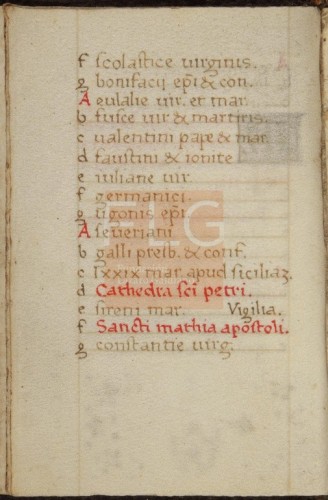 f scolastice uirginis.
g bonifacij ep̄i & con.
A eulalie uir. et mar.
b fusce uir & martiris.
c ualentini pape & mar.
d faustini & ionite
e iuliane uir.
f germanici.
g ep̄i
A seueriani
b galli presb. & conf.
c lxxix mar. apud siciliaȝ.
d Cathedra sc̄i petri.
e sirenī mar. Vigilia.
f Sancti mathia apostoli.
g constantie uirg.
FLG